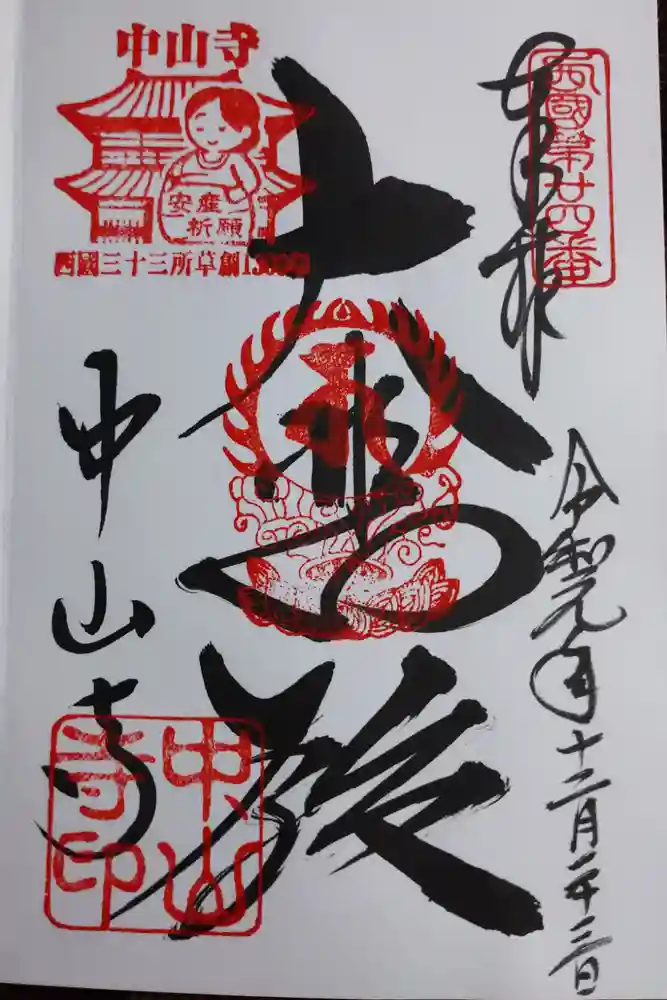 奉拝
西國第廿四番
令和元年十二月二十三日
大悲殿
中山寺
安産
祈願
西國三十三所草創1300年
中山寺
中山寺印